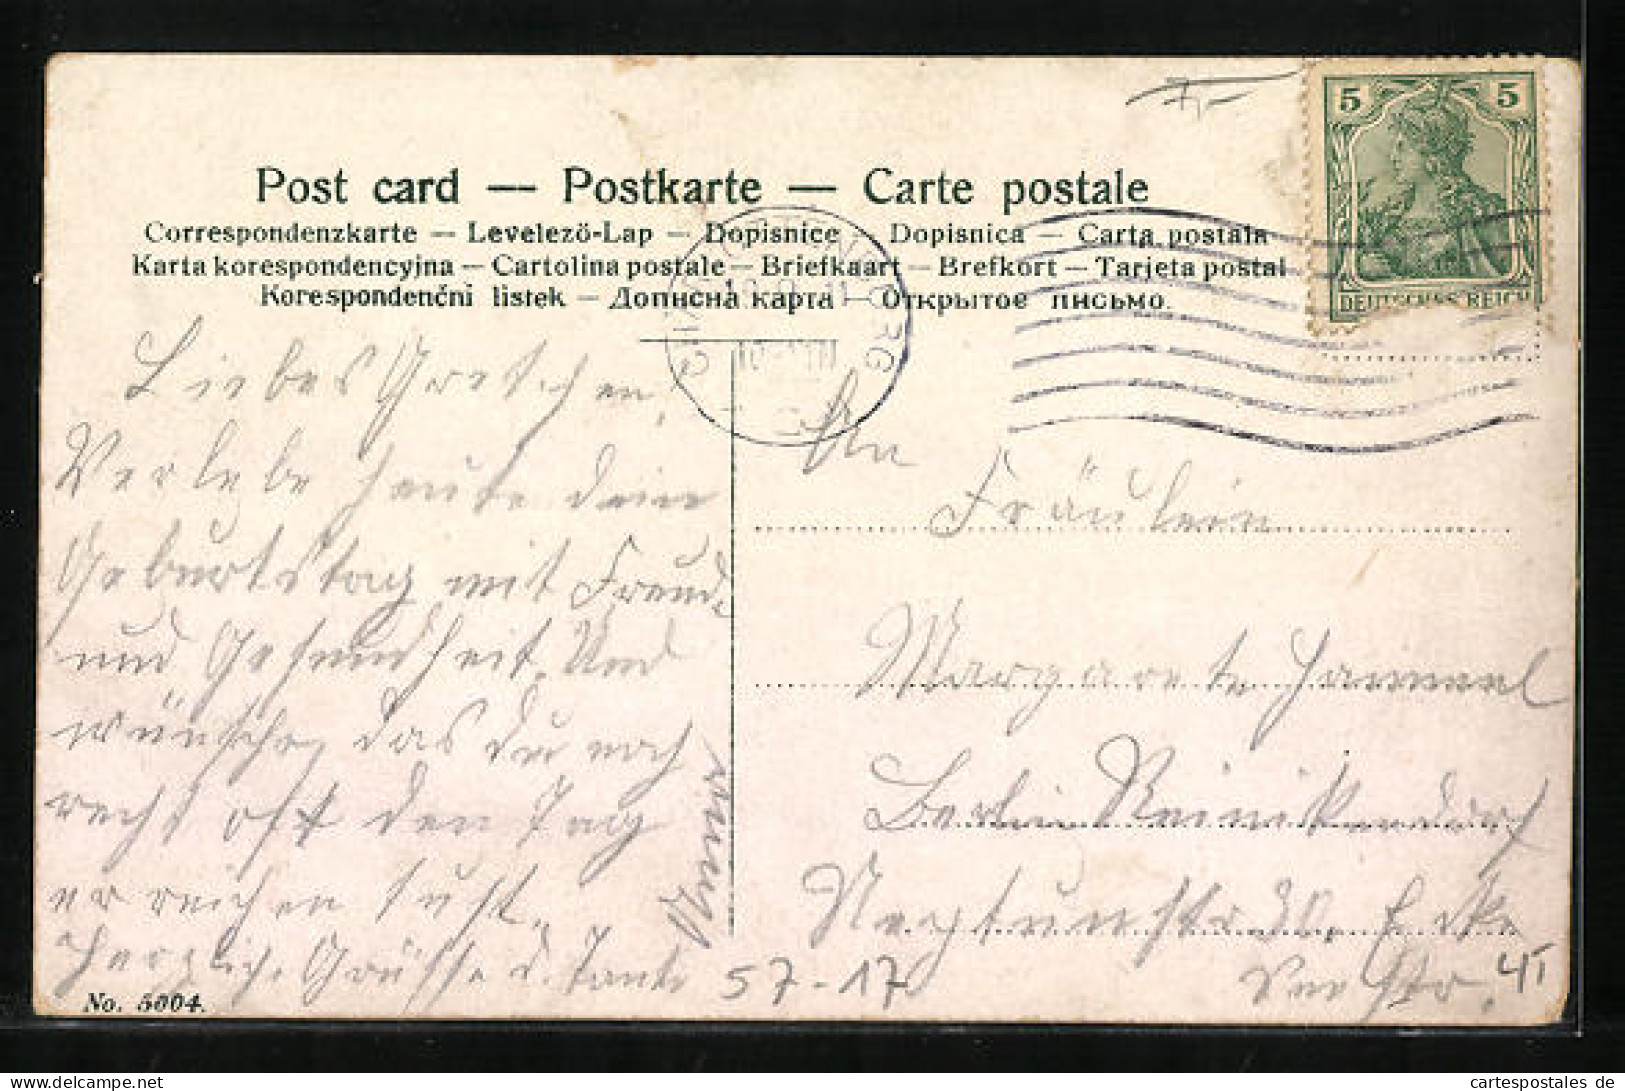 Post card — Postkarte — Carte postale
Correspondenzkarte — Levelezö-Lap — Dopisnice — Dopisnica — Carta postala
Karta korespondencyjna — Cartolina postale — Briefkaart — Brefkort — Tarjeta postal
Korespondenční listek — Дописна карта — Открытое письмо.
5 5
DEUTSCHES REICH
CHARLOTTENBURG
Liebes Gretchen,
Verlebe heute dein
Geburtstag mit Freude
und Gesundheit. Und
wünsche das du noch
recht oft den Tag
erreichen tust.
Herzlich. Grüsse d. Tante
An
Fräulein
Margarete
Berlin Reinikendorf
Neptunstr 30, Ecke
Seestr. 41
57-17
No. 5004.
cartespostales de